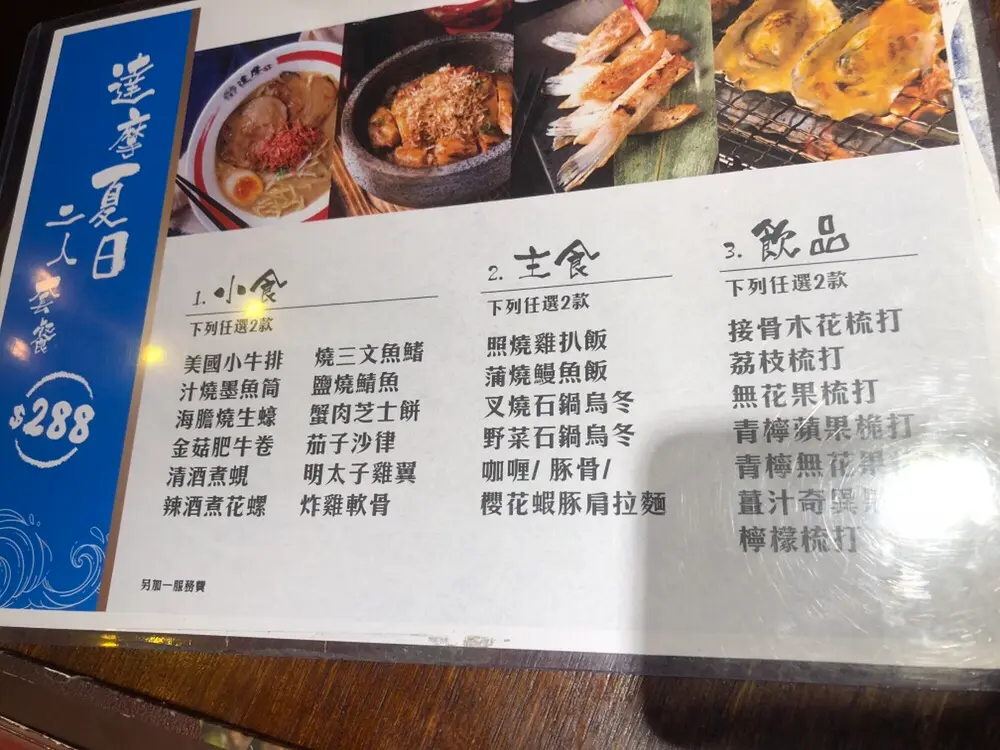 達摩夏日
二人套餐
$288
1. 小食
下列任選2款
美國小牛排
汁燒墨魚筒
海膽燒生蠔
金菇肥牛卷
清酒煮蜆
辣酒煮花螺
燒三文魚鰭
鹽燒鯖魚
蟹肉芝士餅
茄子沙律
明太子雞翼
炸雞軟骨
2. 主食
下列任選2款
照燒雞扒飯
蒲燒鰻魚飯
叉燒石鍋烏冬
野菜石鍋烏冬
咖喱/ 豚骨/
櫻花蝦豚肩拉麵
3. 飲品
下列任選2款
接骨木花梳打
荔枝梳打
無花果梳打
青檸蘋果梳打
青檸無花果
薑汁奇異果
檸檬梳打
另加一服務費